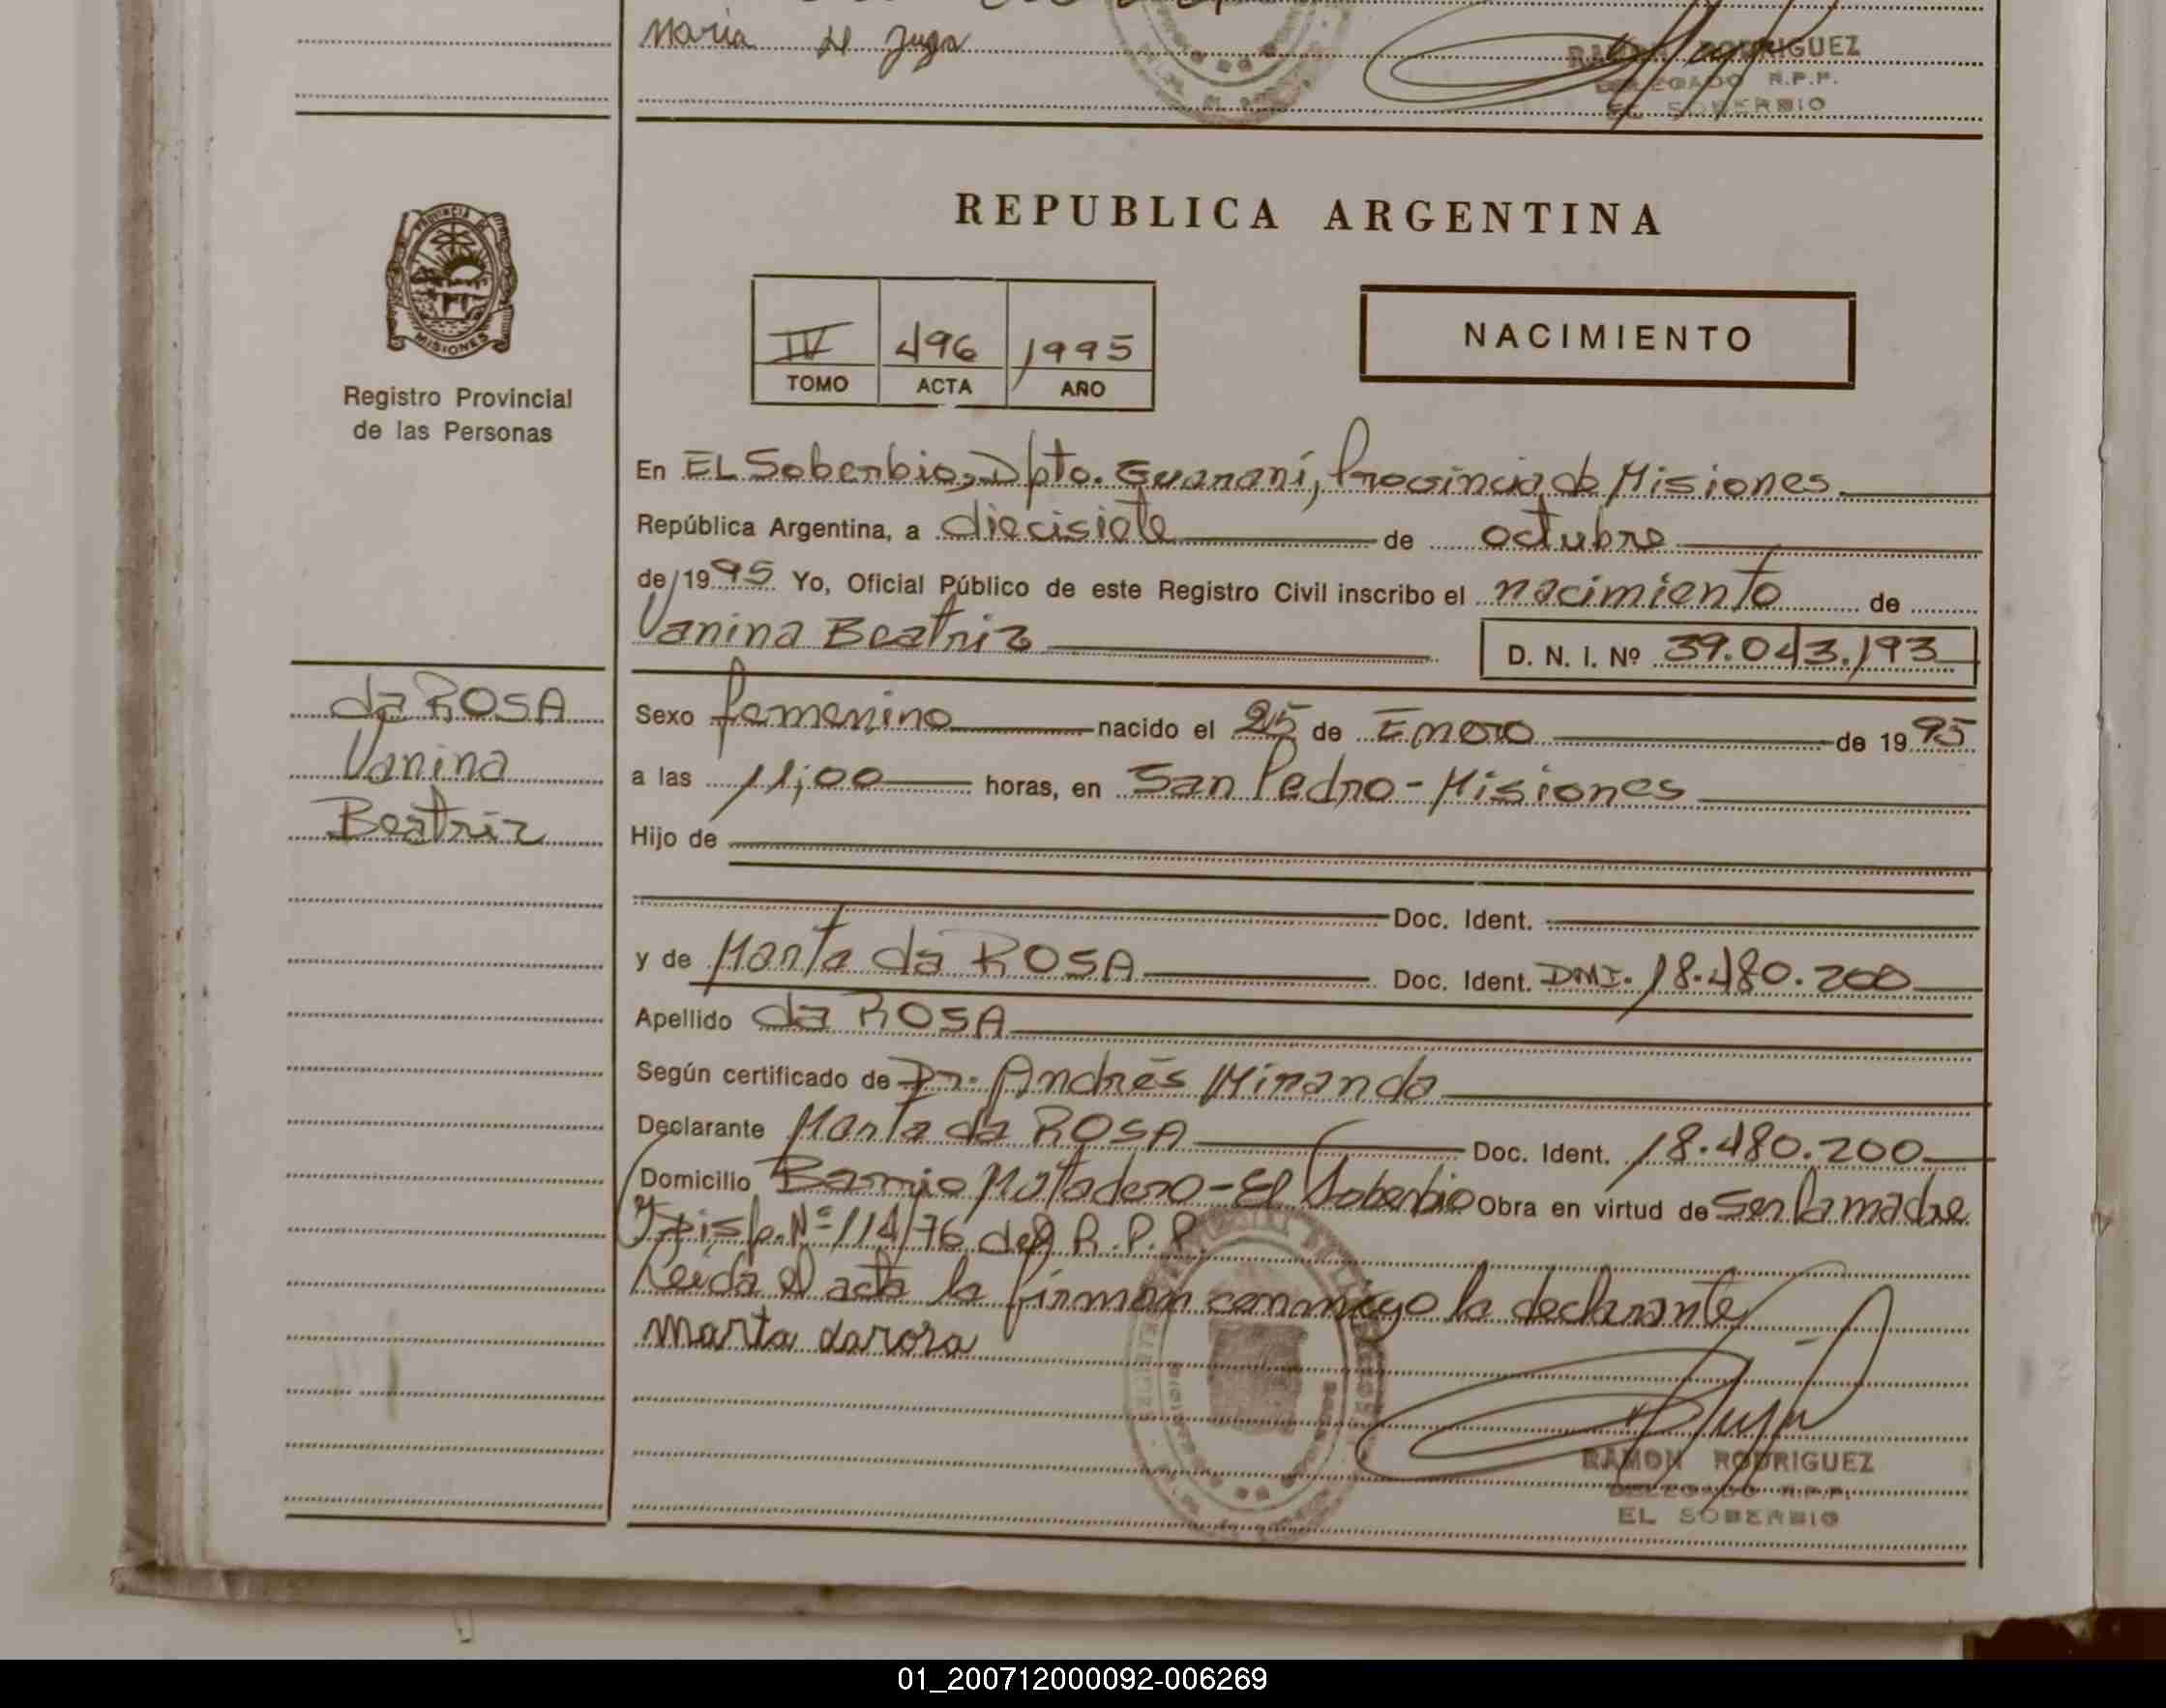 Maria
RAMON RODRIGUEZ
DELEGADO R.P.P.
EL SOBERBIO
PROVINCIA DE
MISIONES
Registro Provincial
de las Personas
REPUBLICA ARGENTINA
IV 496 1995
TOMO ACTA AÑO
NACIMIENTO
En EL Soberbio, Dpto. Guaraní, Provincia de Misiones
República Argentina, a diecisiete de octubre
de 1995 Yo, Oficial Público de este Registro Civil inscribo el nacimiento de
Vanina Beatriz D. N. I. Nº 39.043.193
da ROSA
Vanina
Beatriz
Sexo femenino nacido el 25 de Enero de 1995
a las 11,00 horas, en San Pedro - Misiones
Hijo de
Doc. Ident.
y de Marta da ROSA Doc. Ident. DNI. 18.480.200
Apellido da ROSA
Según certificado de Dr. Andrés Miranda
Declarante Marta da ROSA Doc. Ident. 18.480.200
Domicilio Barrio Matadero - El Soberbio Obra en virtud de Ser la madre
y Disp. Nº 114/76 del R.P.P.
Leida el acta la firman conmigo la declarante
marta darosa
RAMON RODRIGUEZ
DELEGADO R.P.P.
EL SOBERBIO
01_200712000092-006269